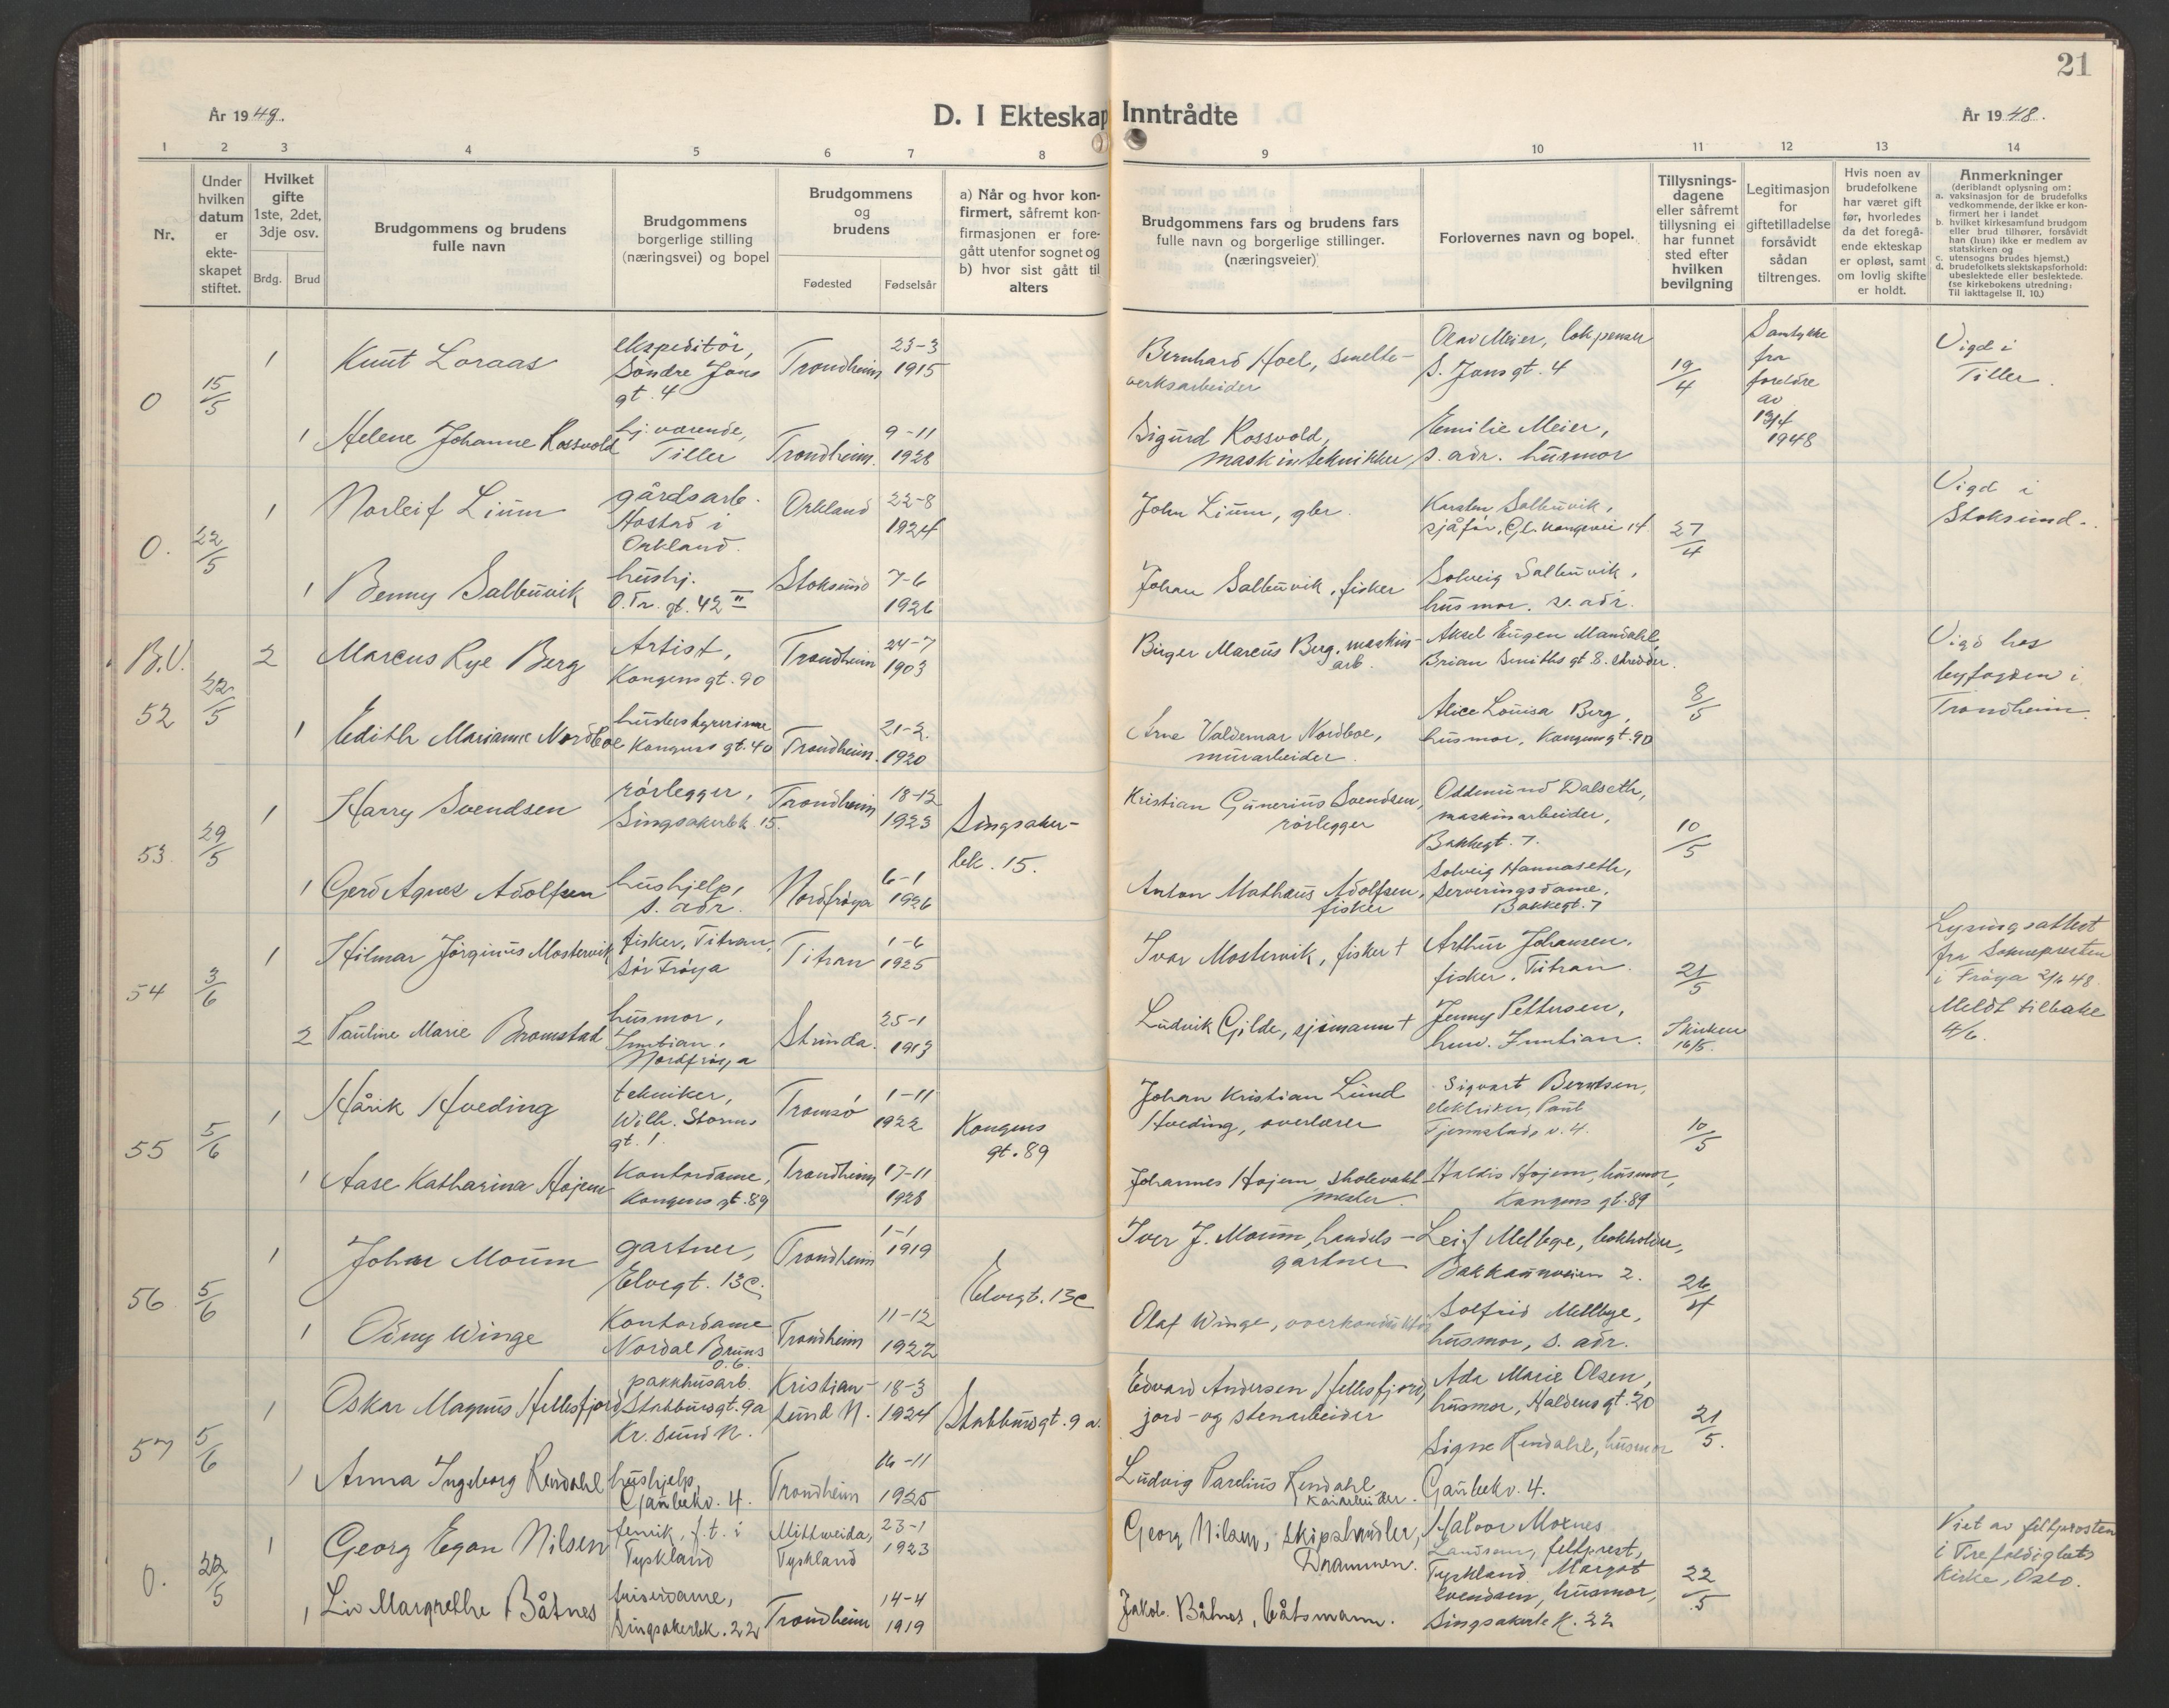 21
År 1949.
D. I Ekteskap Inntrådte
År 1948.
1 2 3 4 5 6 7 8 9 10 11 12 13 14
Nr.
Under
hvilken
datum
er
ekte-
skapet
stiftet.
Hvilket
gifte
1ste, 2det,
3dje osv.
Brdg. Brud
Brudgommens og brudens
fulle navn
Brudgommens
borgerlige stilling
(næringsvei) og bopel
Brudgommens
og
brudens
Fødested Fødselsår
a) Når og hvor kon-
firmert, såfremt kon-
firmasjonen er fore-
gått utenfor sognet og
b) hvor sist gått til
alters
Brudgommens fars og brudens fars
fulle navn og borgerlige stillinger.
(næringsveier)
Forlovernes navn og bopel.
Tillysnings-
dagene
eller såfremt
tillysning ei
har funnet
sted efter
hvilken
bevilgning
Legitimasjon
for
giftetilladelse
forsåvidt
sådan
tiltrenges.
Hvis noen av
brudefolkene
har været gift
før, hvorledes
da det foregå-
ende ekteskap
er opløst, samt
om lovlig skifte
er holdt.
Anmerkninger
(deriblandt oplysning om:
a. vaksinasjon for de brudefolks
vedkommende, der ikke er kon-
firmert her i landet
b. hvilket kirkesamfund brudgom
eller brud tilhører, forsåvidt
han (hun) ikke er medlem av
statskirken og
c. utensogns brudes hjemst.)
d. brudefolkets slektskapsforhold:
ubeslektede eller beslektede.
(se kirkebokens utredning:
Til iakttagelse II. 10.)
0
15/5
1
Knut Loraas
ekspeditør,
Søndre Jons
gt. 4
Trondheim
23-3
1915
Bernhard Hoel, smelte-
verksarbeider
Olav Meier, lokpusser
S. Jonsgt. 4
19/4
Samtykke
fra
foreldre
av
19/4
1948
Vigd i
Tiller.
1
Helene Johanne Rossvold
hj. værende,
Tiller
Trondheim.
9-11
1928
Sigurd Rossvold,
maskintekniker
Emilie Meier,
s. adr. husmor
0.
22/5
1
Norleif Lium
gårdsarb.
Hostad i
Orkland.
Orkland
22-8
1924
John Lium, gbr.
Karsten Salbuvik,
sjåfør, Gl. Kongevei 14
27/4
Vigd i
Stoksund.
1
Benny Salbuvik
hushj.
O. Tr. gt. 42 II
Stoksund
7-6
1926
Johan Salbuvik, fisker
Solveig Salbuvik,
husmor. s. adr.
B.V.
52
22/5
2
Marcus Rye Berg
Artist,
Kongensgt. 90
Trondheim
24-7
1903
Birger Marcus Berg, maskin-
arb.
Aksel Eugen Mandahl,
Brian Smiths gt 8. skredder.
8/5
Vigd hos
byfogden i
Trondheim.
1
Edith Marianne Nordboe
husbestyrerinne
Kongens gt. 40
Trondheim.
21-2.
1920
Arne Valdemar Nordboe,
murarbeider.
Alice Louisa Berg,
husmor, Kongensgt. 90
53
29/5
1
Harry Svendsen
rørlegger,
Singsakerbk. 15.
Trondheim
18-12
1923
Singsaker-
bk. 15.
Kristian Gunerius Svendsen,
rørlegger
Oddmund Dalseth,
maskinarbeider,
Bakkegt. 7.
10/5
1
Gerd Agnes Adolfsen
hushjelp,
s. adr.
Nordfrøya
6-1
1926
Anton Mathæus Adolfsen,
fisker
Solveig Hannaseth,
serveringsdame,
Bakkegt. 7
54
3/6
1
Hilmar Jørginus Mostervik
fisker, Titran,
Sør Frøya
Titran
1-6
1925
Ivar Mostervik, fisker †
Arthur Johansen,
fisker, Titran.
21/5
Lysingsattest
fra Sokneprosten
i Frøya 2/6 48.
Meldt tilbake
4/6.
2
Pauline Marie Bromstad
husmor,
Inntian,
Nordfrøya
Strinda.
25-1
1913
Ludvik Gilde, sjømann †
Jenny Pettersen,
husm. Inntian.
I kirken
16/5.
55
5/6
1
Hårik Hveding
tekniker,
Wilh. Storms
gt. 1.
Tromsø
1-11
1922
Kongens
gt. 89
Johan Kristian Lund
Hveding, overlærer
Sigvart Berntsen,
elektriker, Paul
Fjermstads v. 4.
10/5
1
Aase Katharina Højem
Kontordame,
Kongens gt. 89
Trondheim
17-11
1928
Johannes Højem, skolevakt-
mester.
Haldis Højem, husmor,
Kongens gt. 89
56
5/6
1
Johan Moum
gartner,
Elvegt. 13c.
Trondheim
1-1
1919
Elvegt. 13c
Iver J. Moum, handels-
gartner
Leif Melbye, bokholder,
Bakkaunveien 2.
26/4
1
Oiny Winge
Kontordame
Nordal Bruns
v. 6.
Trondheim
11-12
1922
Olaf Winge, overkonduktør
Solfrid Mellbye,
husmor, s. adr.
57
5/6
1
Oskar Magnus Hellesfjord
pakkhusarb.
Stabbursgt. 9a
Kr. sund N.
Kristian-
sund N.
18-3
1924
Stabbursgt. 9 a.
Edvard Andersen Hellesfjord,
jord- og stenarbeider
Ada Marie Olsen,
husmor, Haldensgt. 20
21/5.
1
Anna Ingeborg Rendahl
hushjelp,
Gaubekv. 4.
Trondheim
16-11
1925
Ludvig Parelius Rendahl
kaiarbeider.
Signe Rendahl, husmor
Gaubekv. 4.
0.
22/5
1
Georg Egon Nilsen
fenrik, f.t. i
Tyskland
Mittweida,
Tyskland
23-1
1923
Georg Nilsen, skipshandler,
Drammen.
Halvor Moxnes
Landsem, feltprest,
Tyskland. Margot
Svendsen, husmor,
Singsakerbk. 22
22/5
Viet av feltprosten
i Trefoldighets
kirke, Oslo.
1
Liv Margrethe Båtnes
friserdame,
Singsakerbk. 22
Trondheim
14-4
1919
Jakob Båtnes, båtsmann.